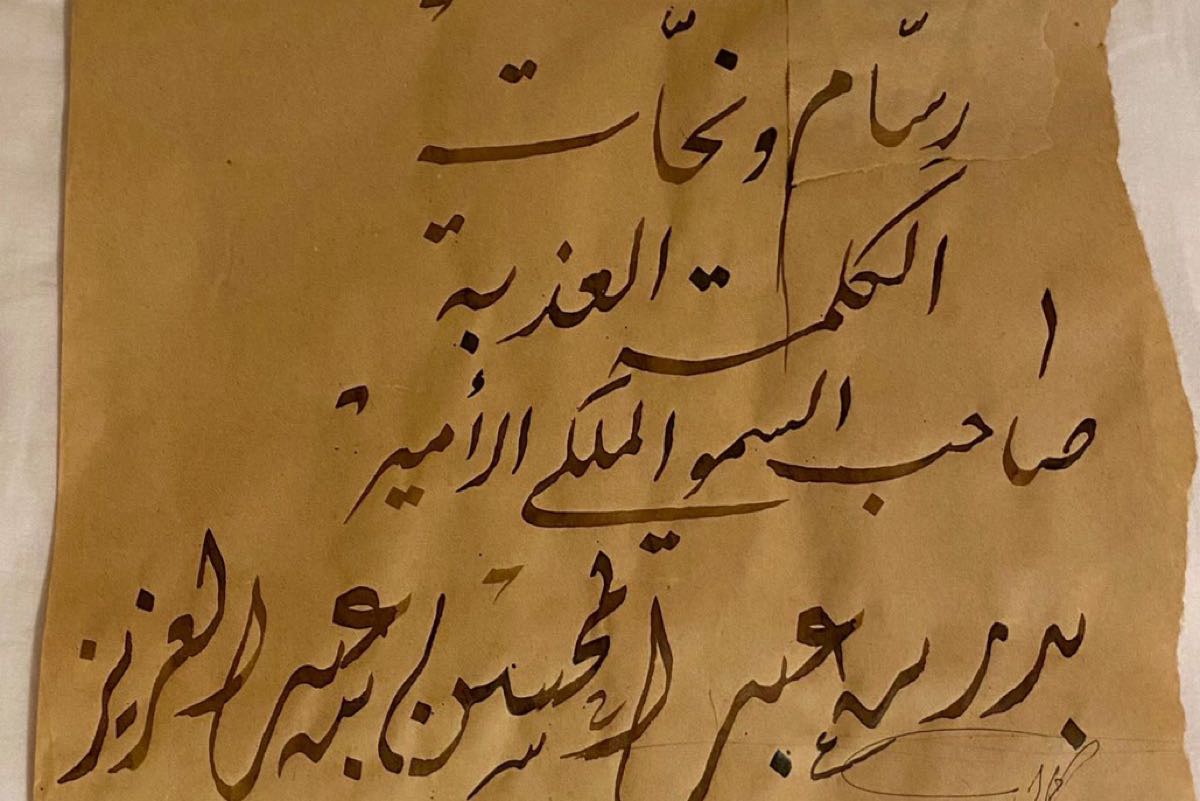 رسّام ونحّات
الكلمة العذبة
صاحب السمو الملكي الأمير
بدر بن عبد المحسن بن عبد العزيز